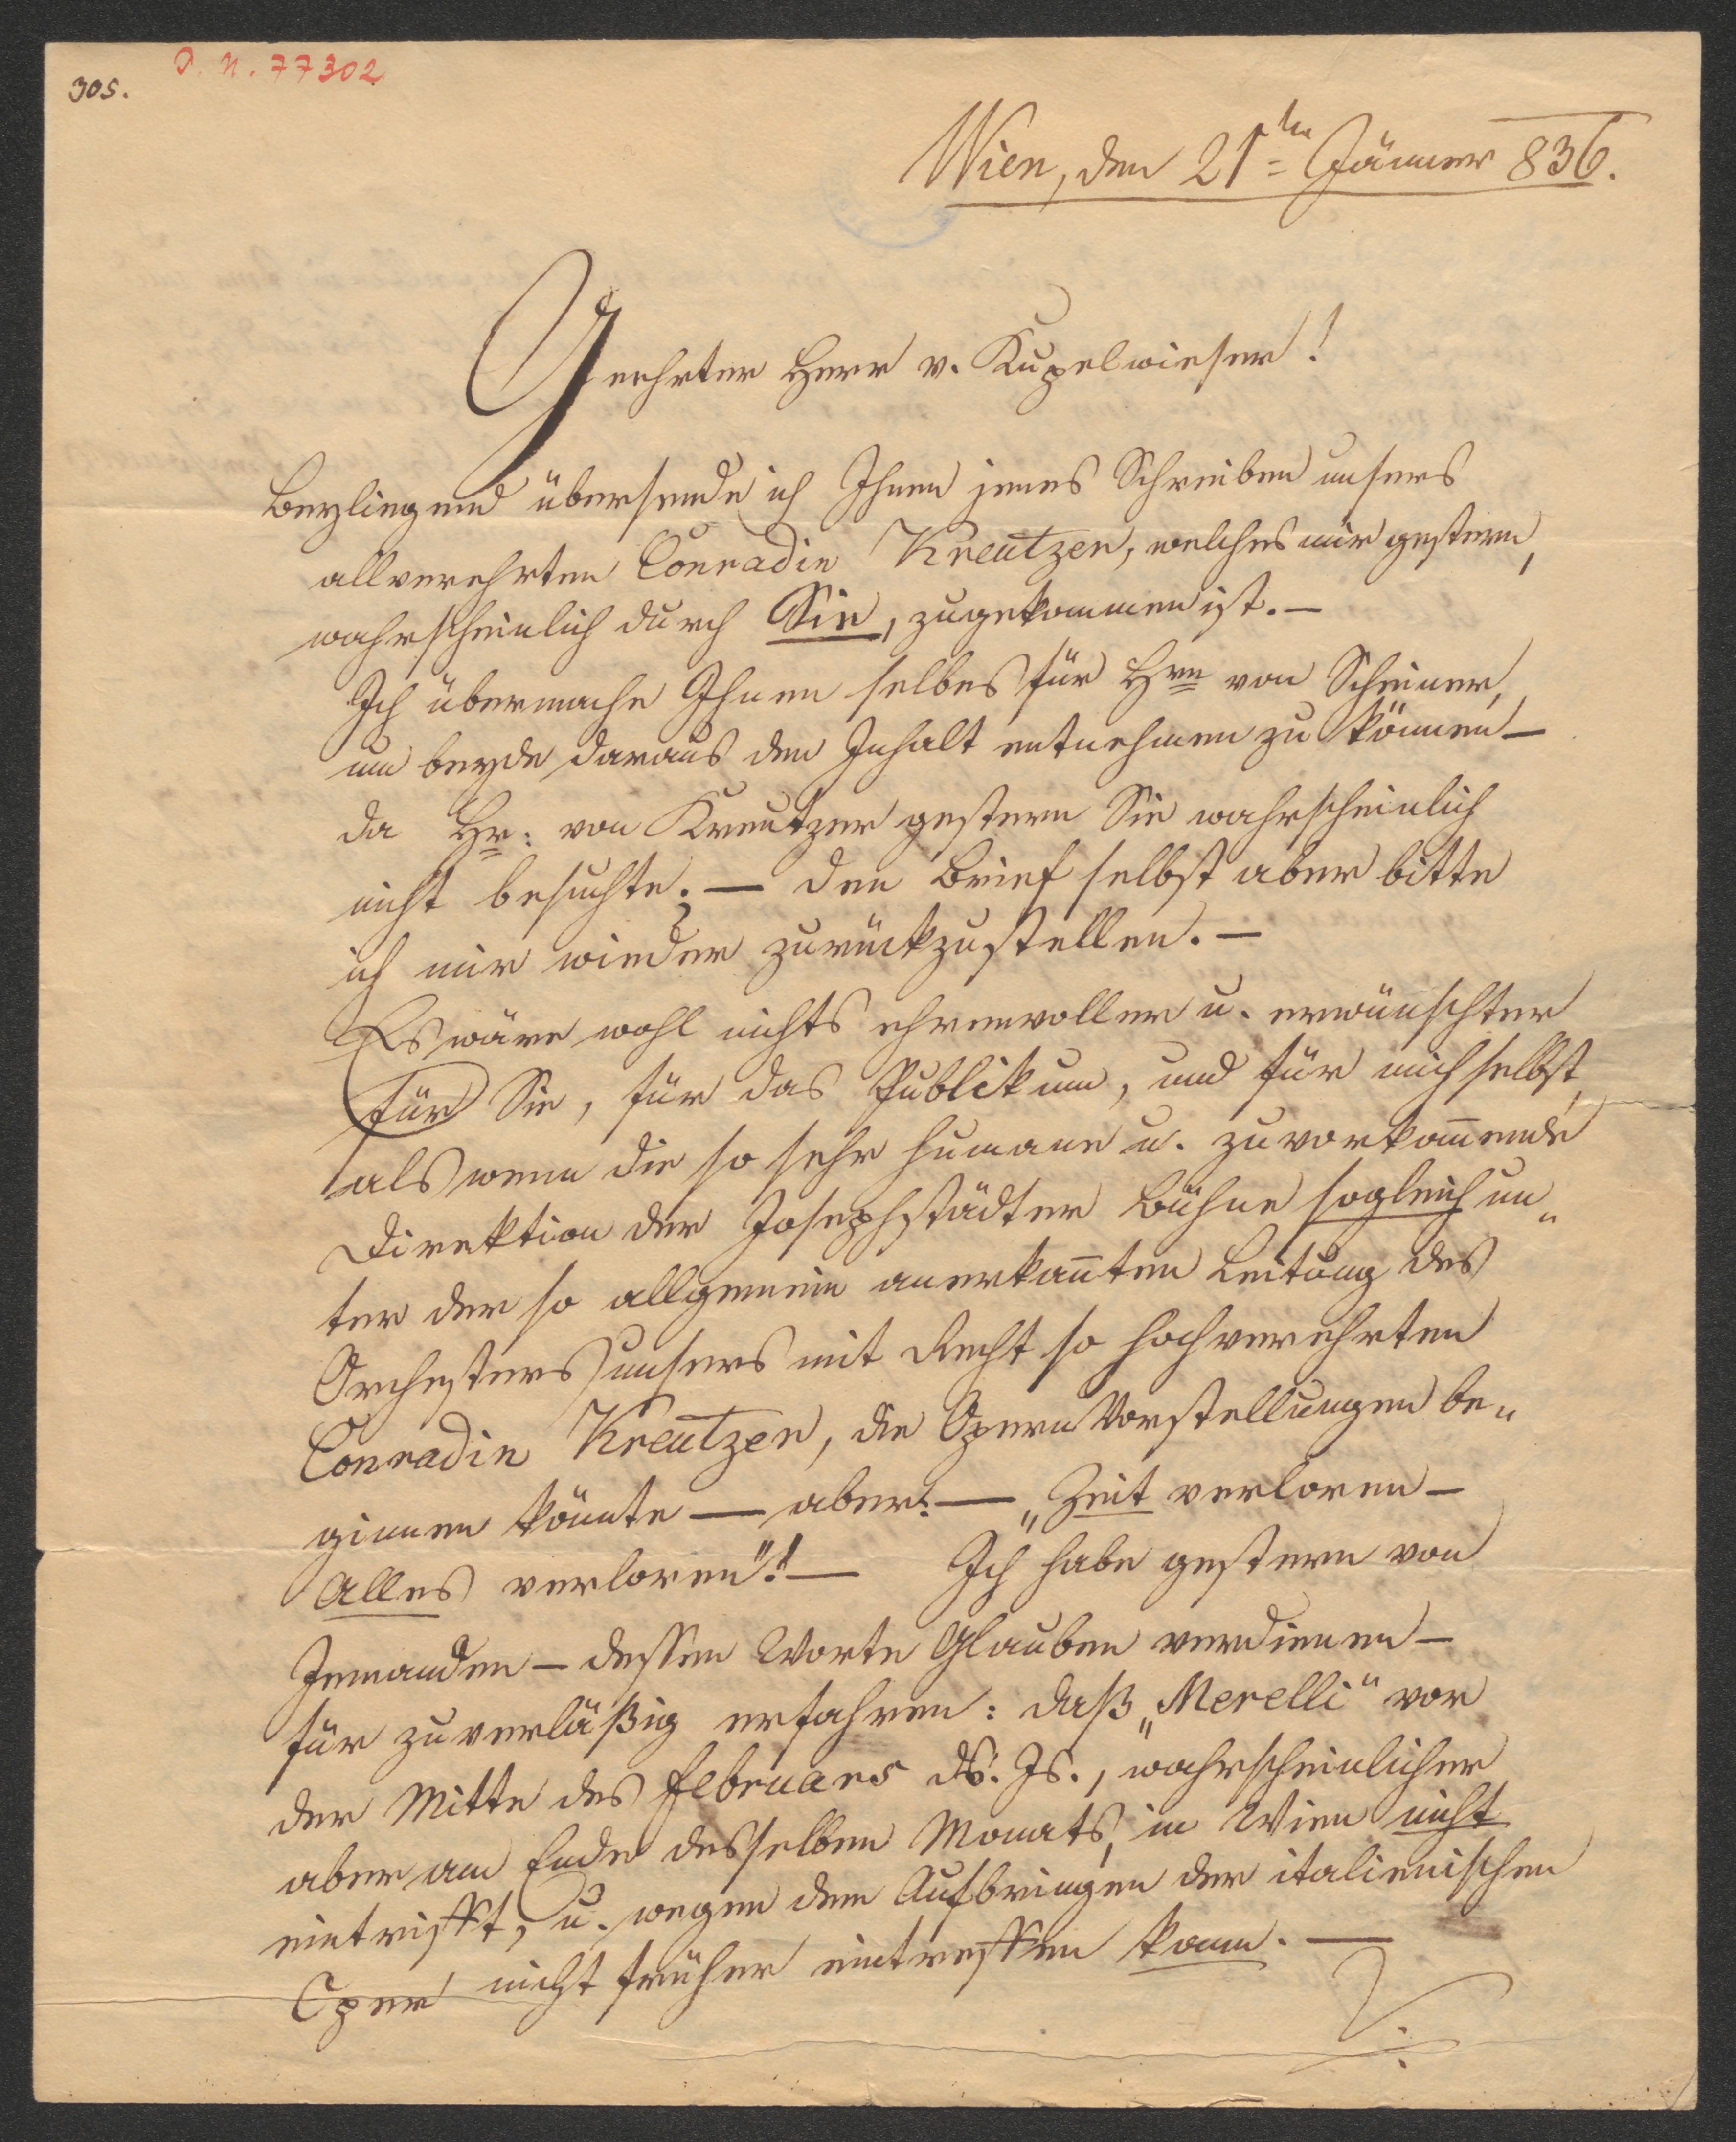 305.
J. N. 77302
Wien, den 21ten Jänner 836.
Geehrter Herr v. Kupelwieser!
Beyliegend übersende ich Ihnen jenes Schreiben unsers
allverehrten Conradin Kreutzer, welches mir gestern,
wahrscheinlich durch Sie, zugekommen ist. —
Ich übermache Ihnen selbes für Hrn von Scheiner,
um beyde daraus den Inhalt entnehmen zu können —
da Hr: von Kreutzer gestern Sie wahrscheinlich
nicht besuchte; — den Brief selbst aber bitte
ich mir wieder zurückzustellen. —
Es wäre wohl nichts ehrenvoller u. erwünschter
für Sie, für das Publikum, und für mich selbst,
als wenn die so sehr humane u. zuvorkom̄ende
Direktion der Josephstädter Bühne sogleich un„
ter der so allgemein anerkan̄ten Leitung des
Orchesters unsers mit Recht so hochverehrten
Conradin Kreutzer, die Opern Vorstellungen be„
ginnen könnte — aber! — „Zeit verloren —
Alles verloren"! — Ich habe gestern von
Jemanden — dessen Worte Glauben verdienen —
für zuverläßig erfahren: daß „Merelli" vor
der Mitte des Februars ds. Js., wahrscheinlicher
aber am Ende desselben Monats, in Wien nicht
eintrifft, u. wegen dem Aufbringen der italienischen
Oper nicht früher eintreffen kann. —